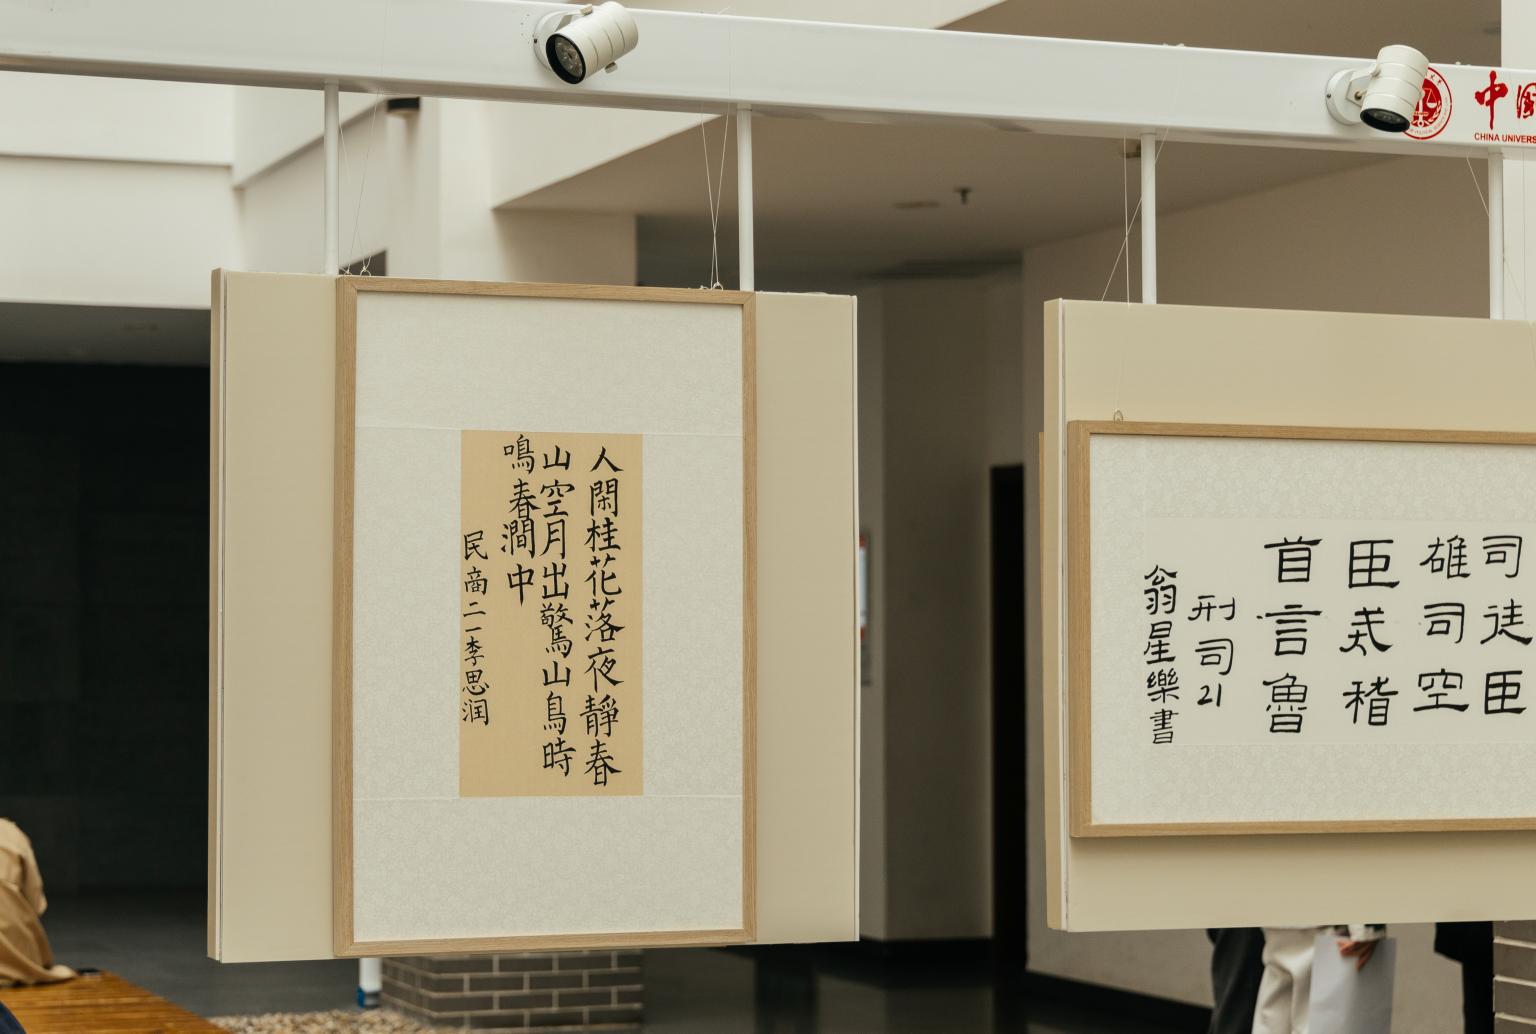 人閑桂花落夜靜春
山空月出驚山鳥時
鳴春澗中
民商二一李思润
司徒臣
雄司空
臣稽
首言魯
刑司21
翁星樂書
中国
CHINA UNIVERS